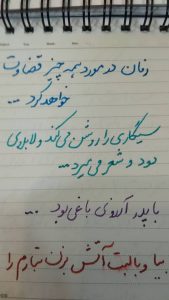 زمان در مورد همه چیز قضاوت
خواهد کرد ...
سیگاری را روشن می‌کند و لابلای
دود و شعر می‌میرد ...
با پدر آرزوی باغی بود ...
بیا و با لبت آتش بزن تبارم را